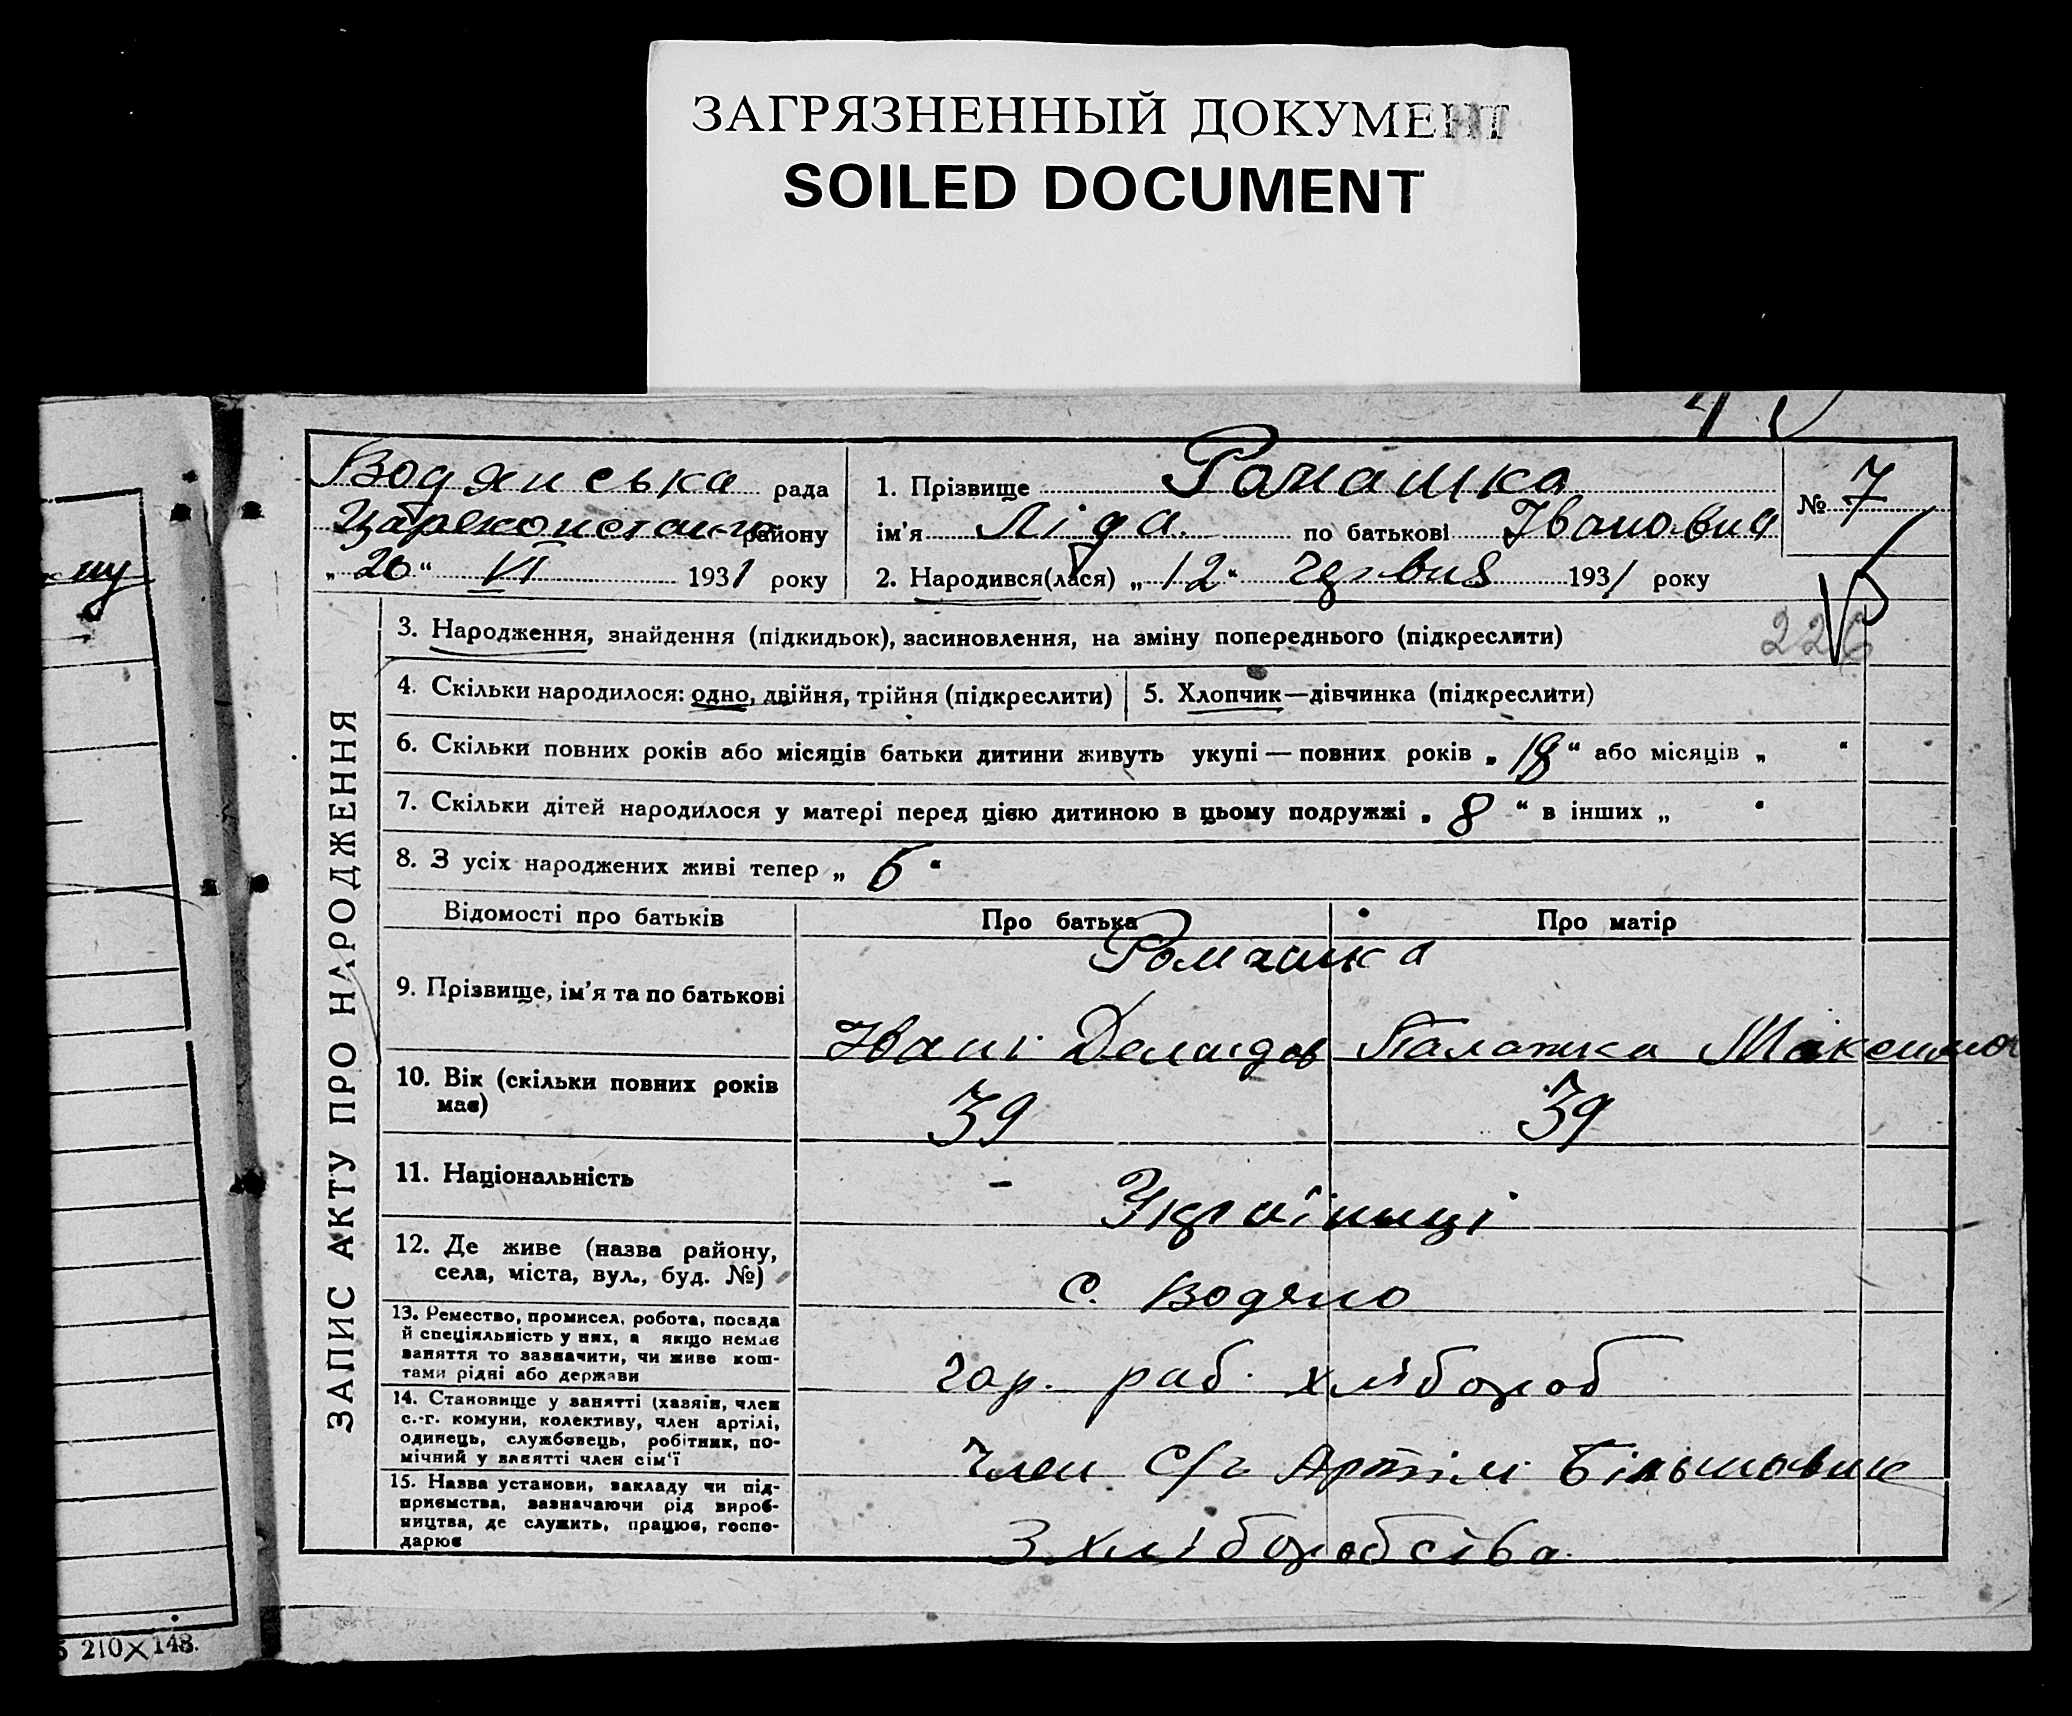 ЗАГРЯЗНЕННЫЙ ДОКУМЕНТ
SOILED DOCUMENT
Водянська рада
району
„26“ VI 1931 року
1. Прізвище Ромашка
ім'я Ліда по батькові Івановна
2. Народився(лася) „12“ Червня 1931 року
№ 7
226
3. Народження, знайдення (підкидьок), засиновлення, на зміну попереднього (підкреслити)
4. Скільки народилося: одно, двійня, трійня (підкреслити)
5. Хлопчик—дівчинка (підкреслити)
6. Скільки повних років або місяців батьки дитини живуть укупі — повних років „18“ або місяців „ “
7. Скільки дітей народилося у матері перед цією дитиною в цьому подружжі „8“ в інших „ “
8. З усіх народжених живі тепер „ “
Відомості про батьків
Про батька
Про матір
9. Прізвище, ім'я та по батькові
Ромашка
Палажка
10. Вік (скільки повних років
має)
39
39
11. Національність
Українці
12. Де живе (назва району,
села, міста, вул., буд. №)
с. Водяно
13. Ремество, промисел, робота, посада
й спеціяльність у них, а якщо немає
заняття то зазначити, чи живе кош-
тами рідні або держави
раб. хлібороб
14. Становище у занятті (хазяїн, член
с.-г. комуни, колективу, член артілі,
одинець, службовець, робітник, по-
мічний у занятті член сім'ї
Член с/г Артіли Більшовик
15. Назва установи, закладу чи під-
приємства, зазначаючи рід вироб-
ництва, де служить, працює, госпо-
дарює
З хліборобства
ЗАПИС АКТУ ПРО НАРОДЖЕННЯ
210×148.